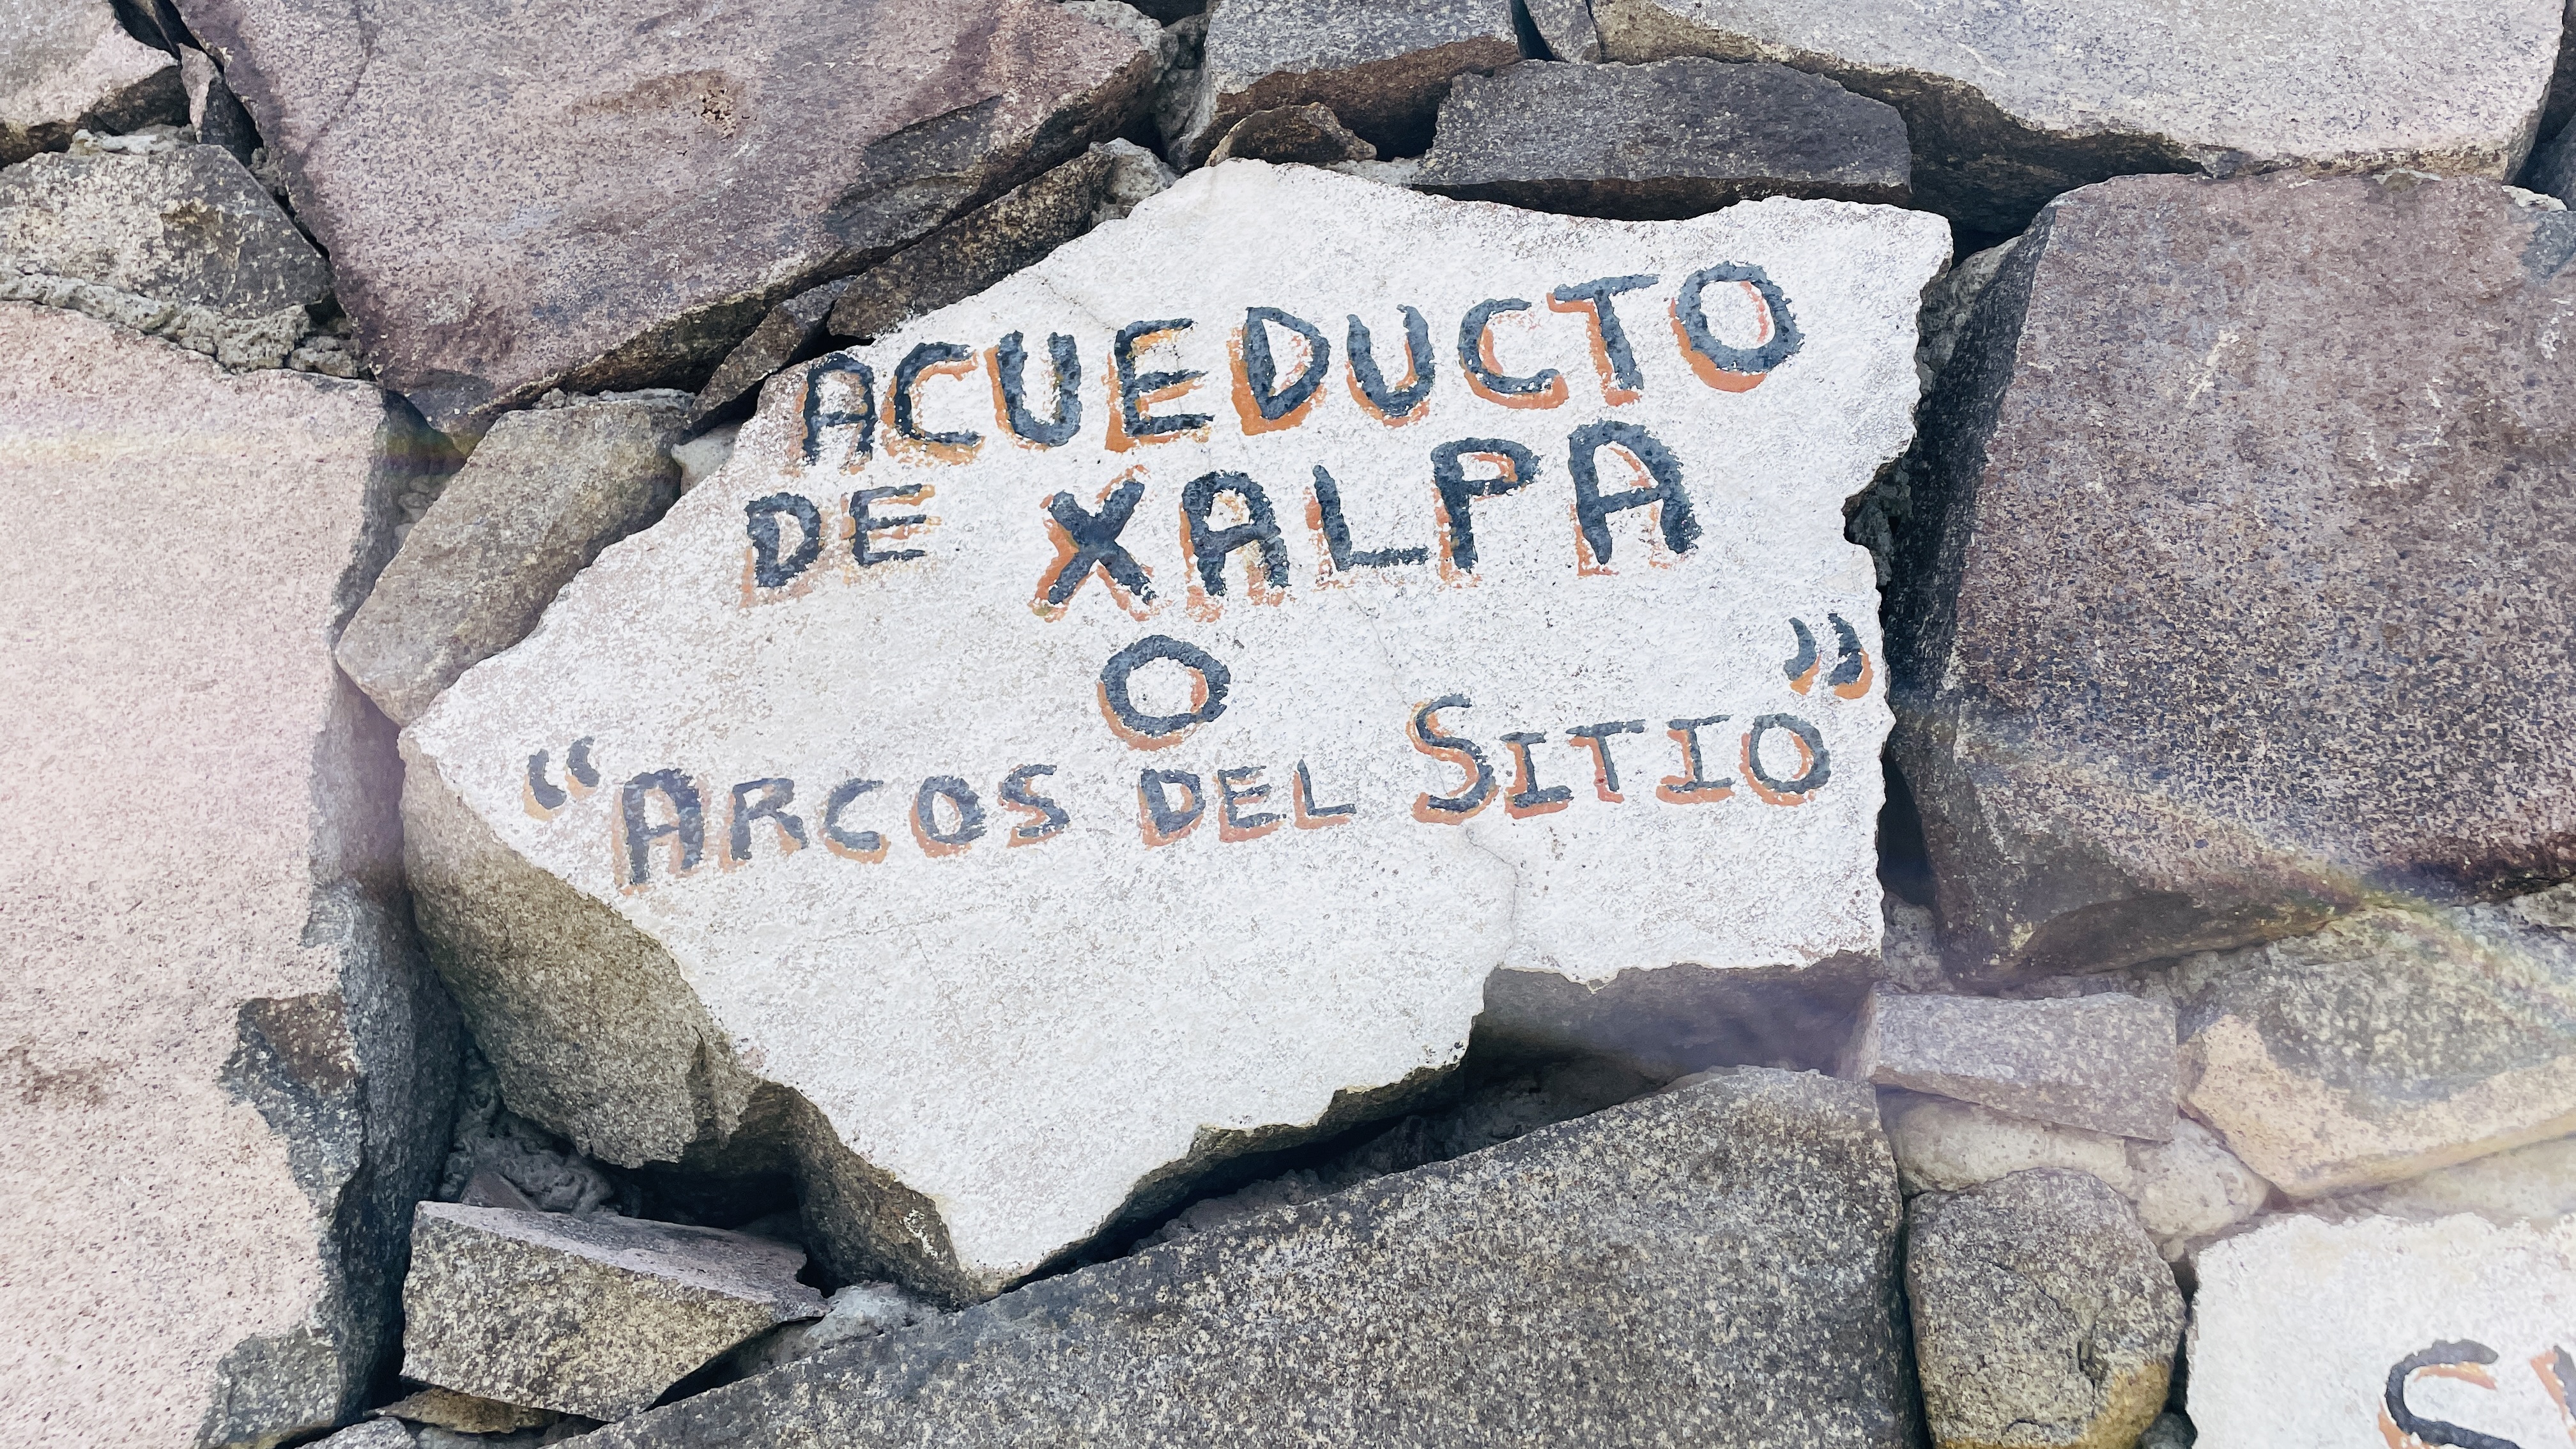 ACUEDUCTO
DE XALPA
O
“ARCOS DEL SITIO”